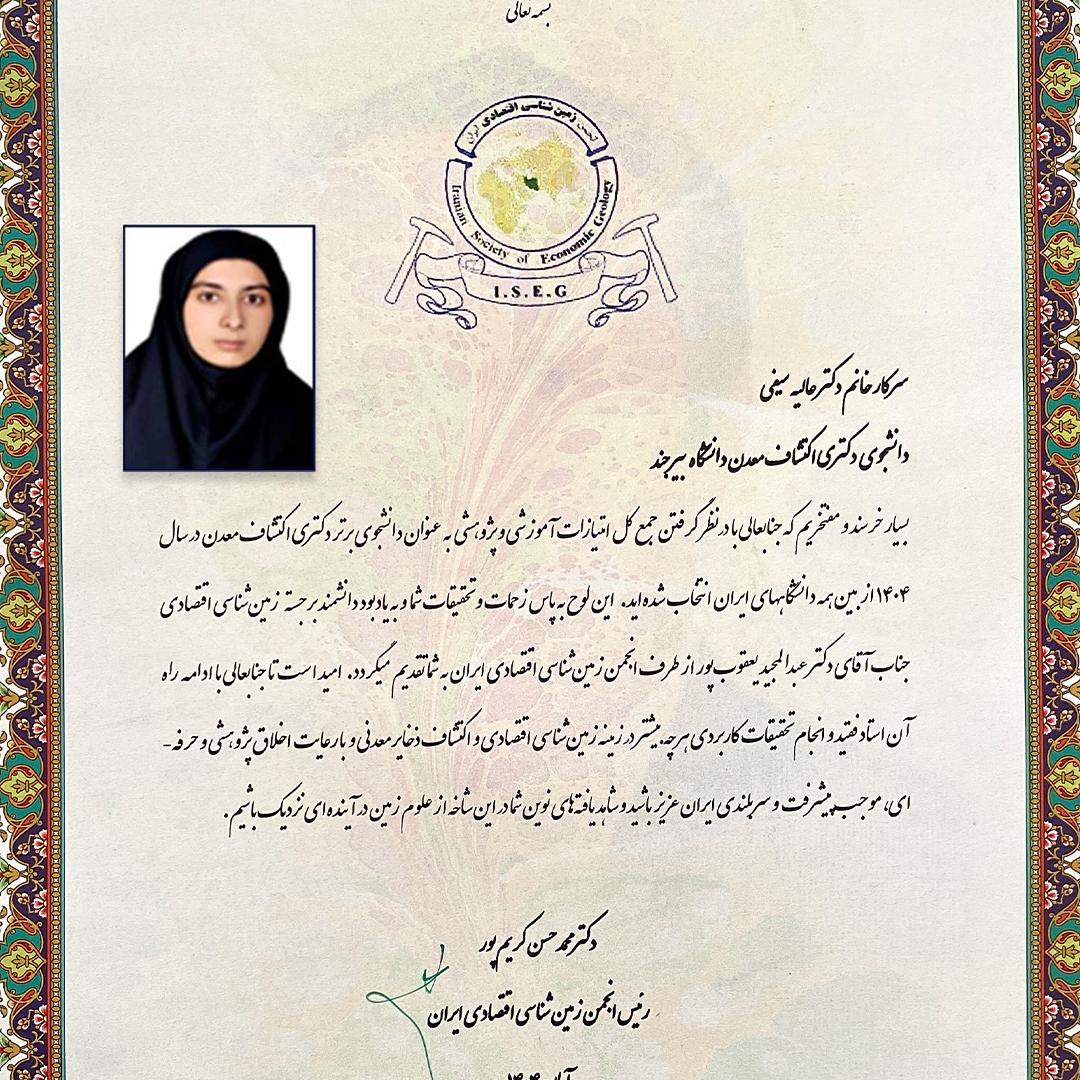 بسمه تعالی
انجمن زمین شناسی اقتصادی ایران
Iranian Society of Economic Geology
I.S.E.G
سرکار خانم دکتر عالیه سیفی
دانشجوی دکتری اکتشاف معدن دانشگاه بیرجند
بسیار خرسند و مفتخریم که جنابعالی با در نظر گرفتن جمع کل امتیازات آموزشی و پژوهشی به عنوان دانشجوی برتر دکتری اکتشاف معدن در سال
۱۴۰۴ از بین همه دانشگاههای ایران انتخاب شده اید. این لوح به پاس زحمات و تحقیقات شما و به یادبود دانشمند برجسته زمین شناسی اقتصادی
جناب آقای دکتر عبدالمجید یعقوب پور از طرف انجمن زمین شناسی اقتصادی ایران به شما تقدیم میگردد. امید است تا جنابعالی با ادامه راه
آن استاد فقید و انجام تحقیقات کاربردی هرچه بیشتر در زمینه زمین شناسی اقتصادی و اکتشاف ذخایر معدنی و با رعایت اخلاق پژوهشی و حرفه-
ای، موجب پیشرفت و سربلندی ایران عزیز باشید و شاهد یافته های نوین شما در این شاخه از علوم زمین در آینده ای نزدیک باشیم.
دکتر محمد حسن کریم پور
رئیس انجمن زمین شناسی اقتصادی ایران